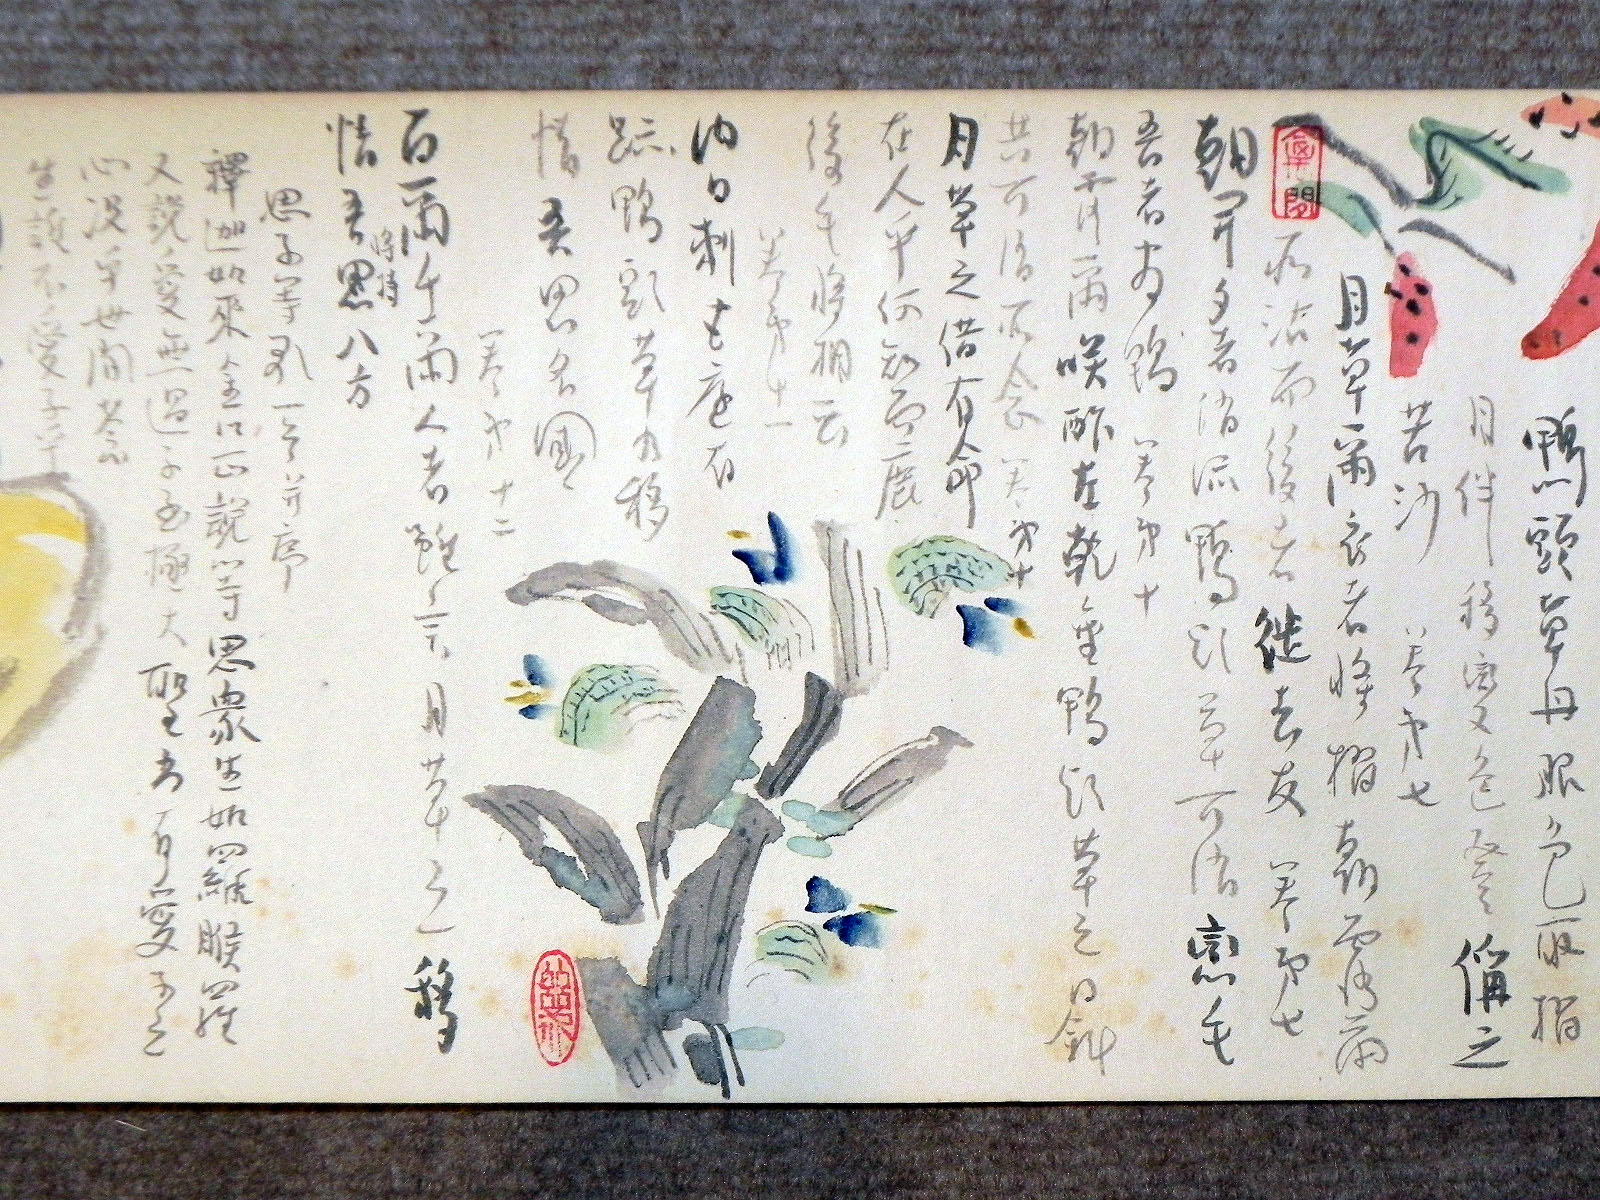 鴨頭草丹服色取揩
目伴移變色登偁之
苦沙 巻第七
月草爾衣者將揩朝露爾
所沾而後者徙去友 巻第七
朝開夕者消流鴨頭草可消戀毛
吾者為鴨 巻第十
朝露爾咲酢左乾垂鴨頭草之日斜
共可消所念 巻第十
月草之借有命
在人乎何知而鹿
後毛將相云
巻第十一
内日刺宮庭有
跡鴨頭草乃移
情吾思名國
巻第十二
百爾千爾人者雖言月草之移
情吾將持八方
思子等歌一首并序
釋迦如來金口正說等思衆生如羅睺羅
又說愛無過子至極大聖尚有愛子之
心況乎世間蒼
生誰不愛子乎